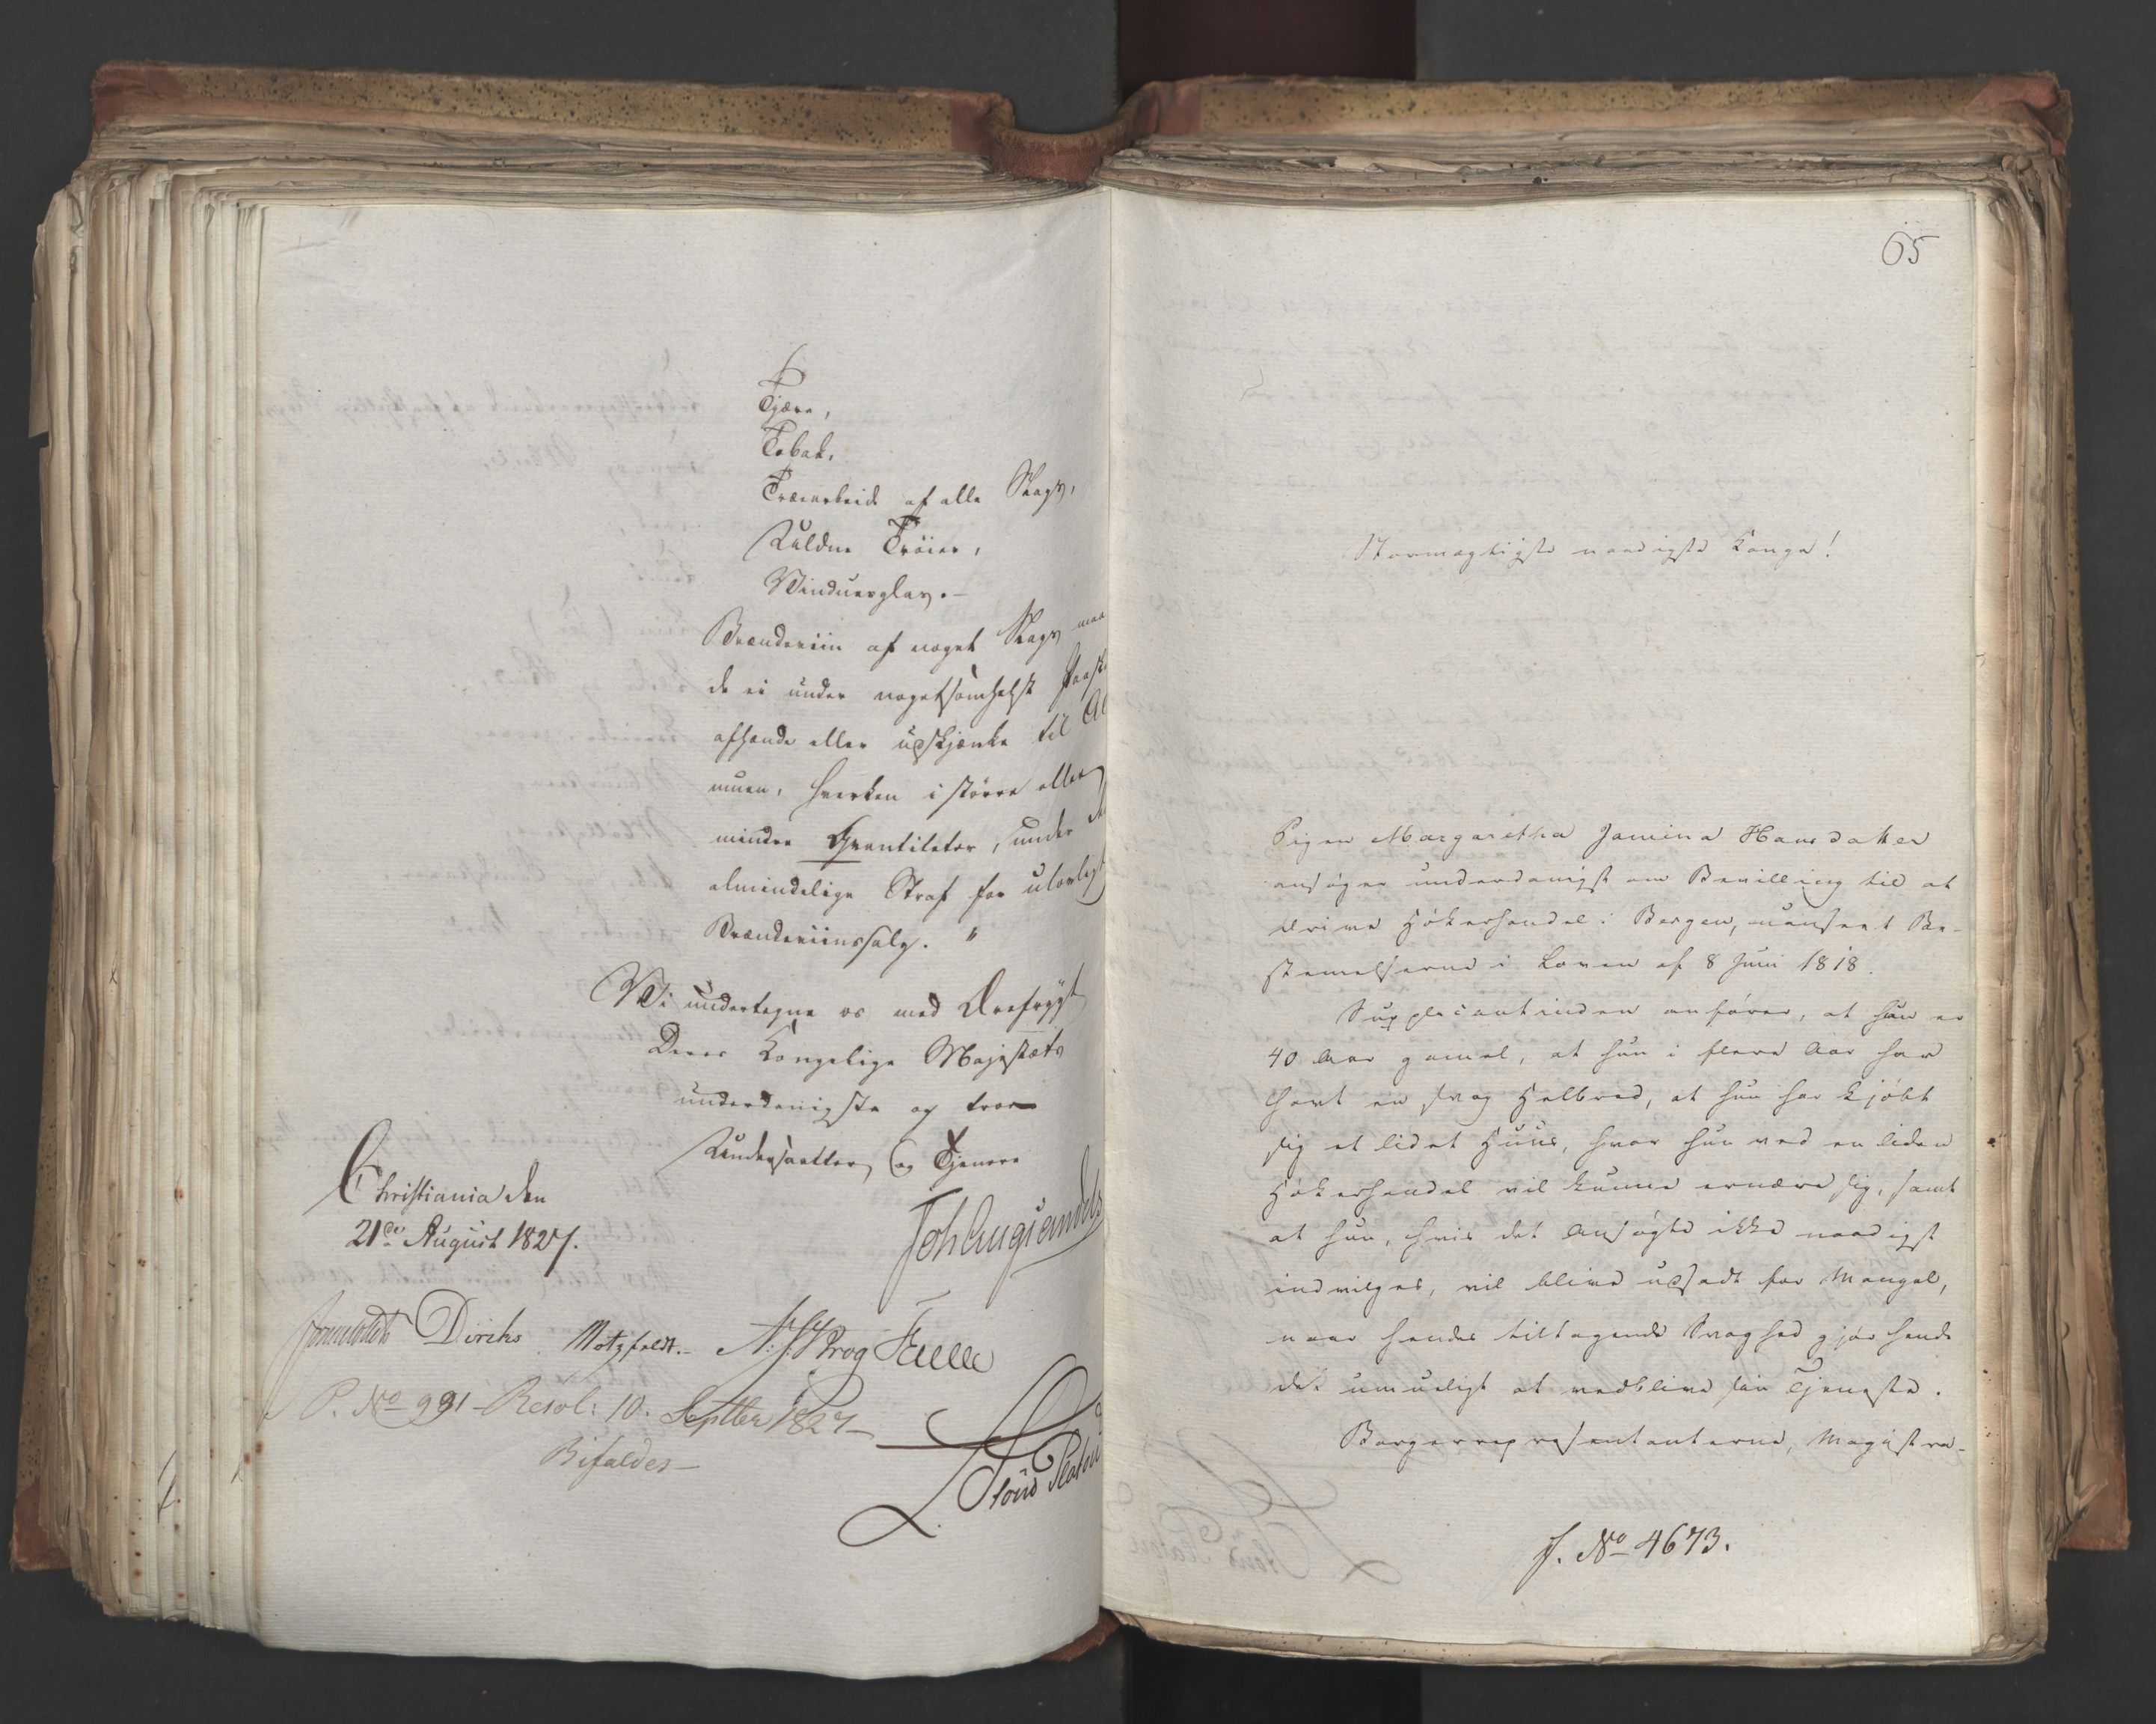 Tjære,
Tobak,
Træearbeide af alle Slags,
Uldne Trøier,
Vinduesglas.-
Brændeviin af noget Slags maa
de ei under nogetsomhelst
afhænde eller udskjænke til Al
muen, hverken i større eller
mindre Qvantiteter, under
almindelige Straf for ulovligt
Brændeviinssalg. "
Vi undertegne os med Ærefrygt
Deres Kongelige Majestæts
underdanigste og troe
Undersaatter og Tjenere
Christiania den
21de August 1827.
Diriks Motzfeldt.- Krog
P. No 991 - Resol: 10. Septber 1827-
Bifaldes-
65
Stormægtigste naadigste Konge!
Pigen Margaretha Jamina Hansdatter
ansøger underdanigst om Bevilling til at
drive Høkerhandel i Bergen, uanseet Be-
stemelserne i Loven af 8 Juni 1818.
Supplicantinden anfører, at hun er
40 Aar gamel, at hun i flere Aar har
havt en svag Helbred, at hun har kjøbt
sig et lidet Huus, hvor hun ved en liden
Høkerhandel vil kunne ernære sig, samt
at hun, hvis det Ansøgte ikke naadigst
indvilges, vil blive udsadt for Mangel,
naar hendes tiltagende Svaghed gjør hende
det umueligt at vedblive sin Tjeneste.
Borgerrepresentanterne, Magistra-
J. No 4673.